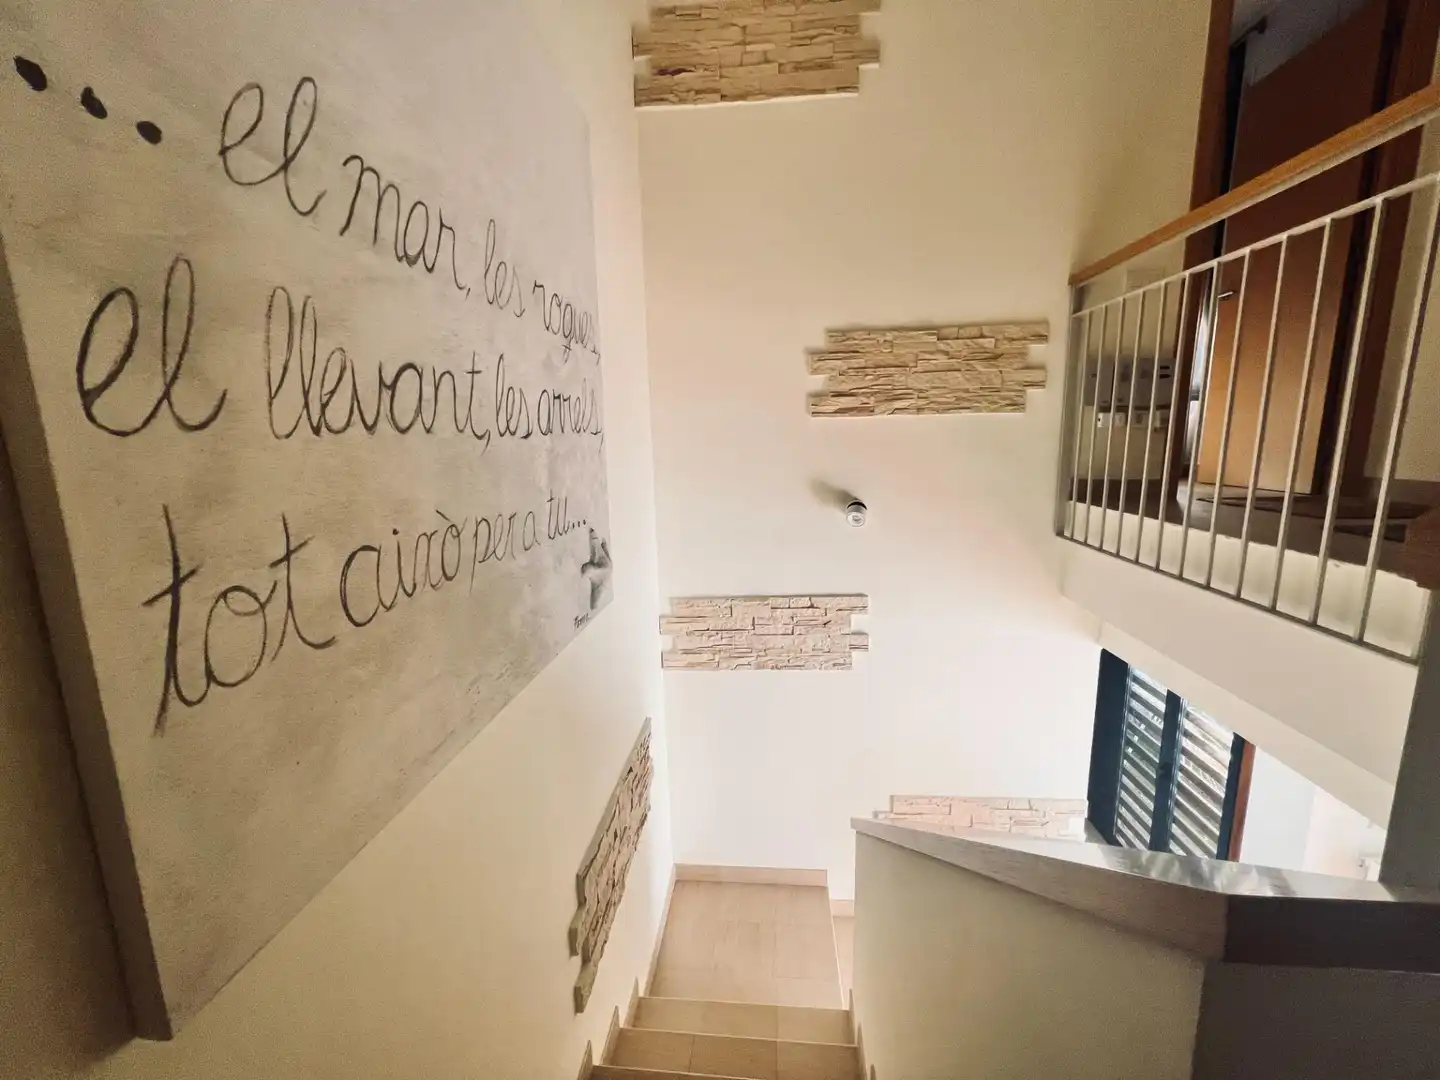 ... el mar, les roques,
el llevant, les arrels,
tot això per a tu...